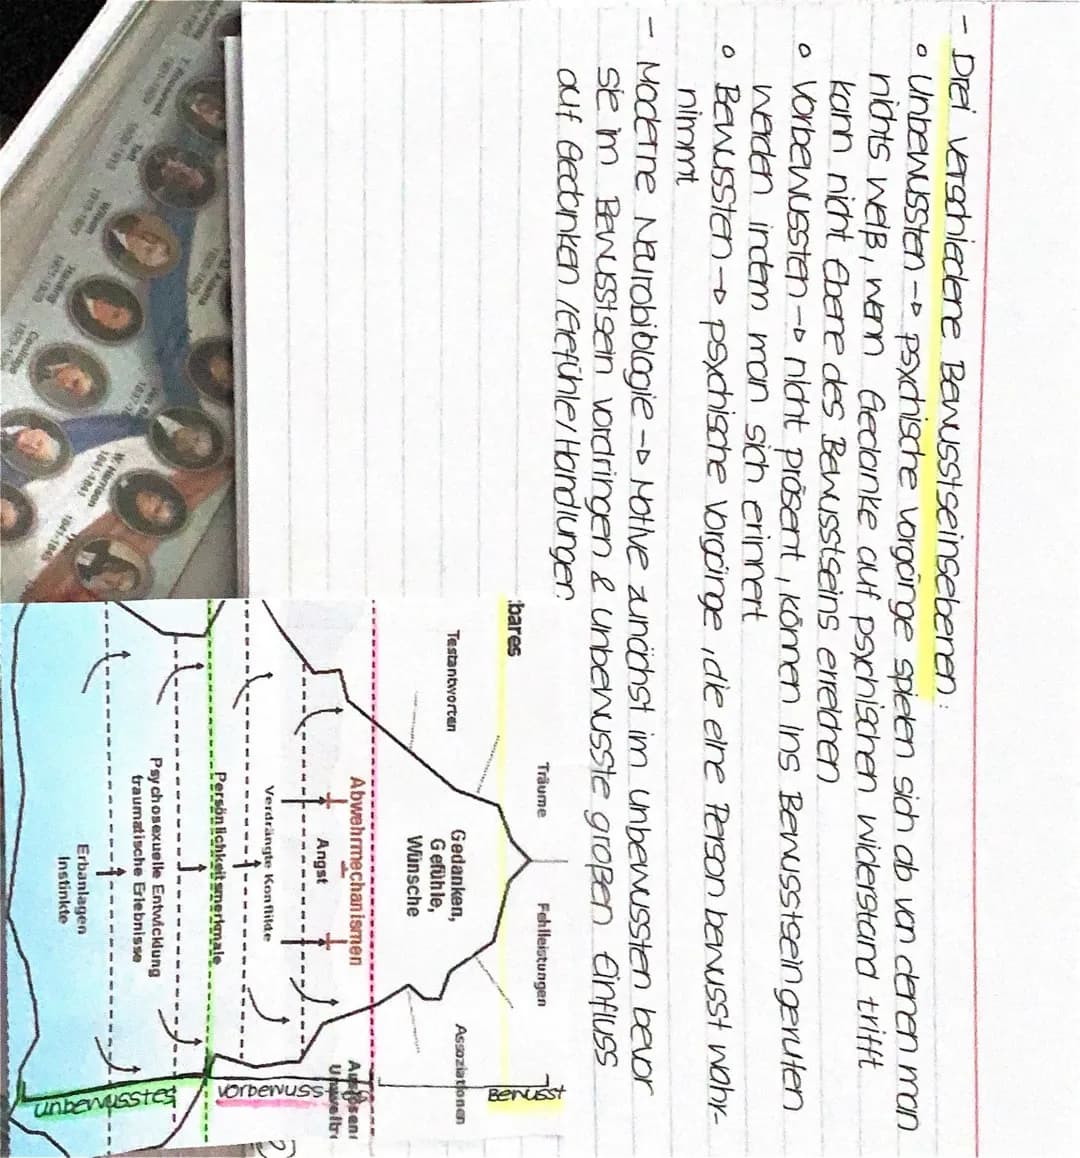 - Drei verschiedene Bewusstseinsebenen:
o Unbewussten → psychische Vorgänge spielen sich ab von denen man
nichts weiß, wenn Gedanke auf psychischen widerstand trifft
kann nicht Ebene des Bewusstseins erreichen
o Vorbewussten → nicht präsent, können ins Bewusstsein gerufen
werden indem man sich erinnert
o Bewussten → psychische Vorgänge, die eine Person bewusst wahr-
nimmt
- Moderne Neurobiologie → Motive zunächst im unbewussten bevor
sie im Bewusstsein vordringen & unbewusste großen Einfluss
auf Gedanken/Gefühle/Handlungen
bares
Träume
Fehlleistungen
Bewusst
Testantworten
Gedanken,
Gefühle,
Wünsche
Assoziationen
Abwehrmechanismen
Angst
Verdrängte Konflikte
vorbewuss
Persönlichkeitsmerkmale
Psychosexuelle Entwicklung
traumatische Erlebnisse
Erbanlagen
Instinkte
unbewusstes
Harding
Coolidge
W. Harrison
1841-1841
1841-1845